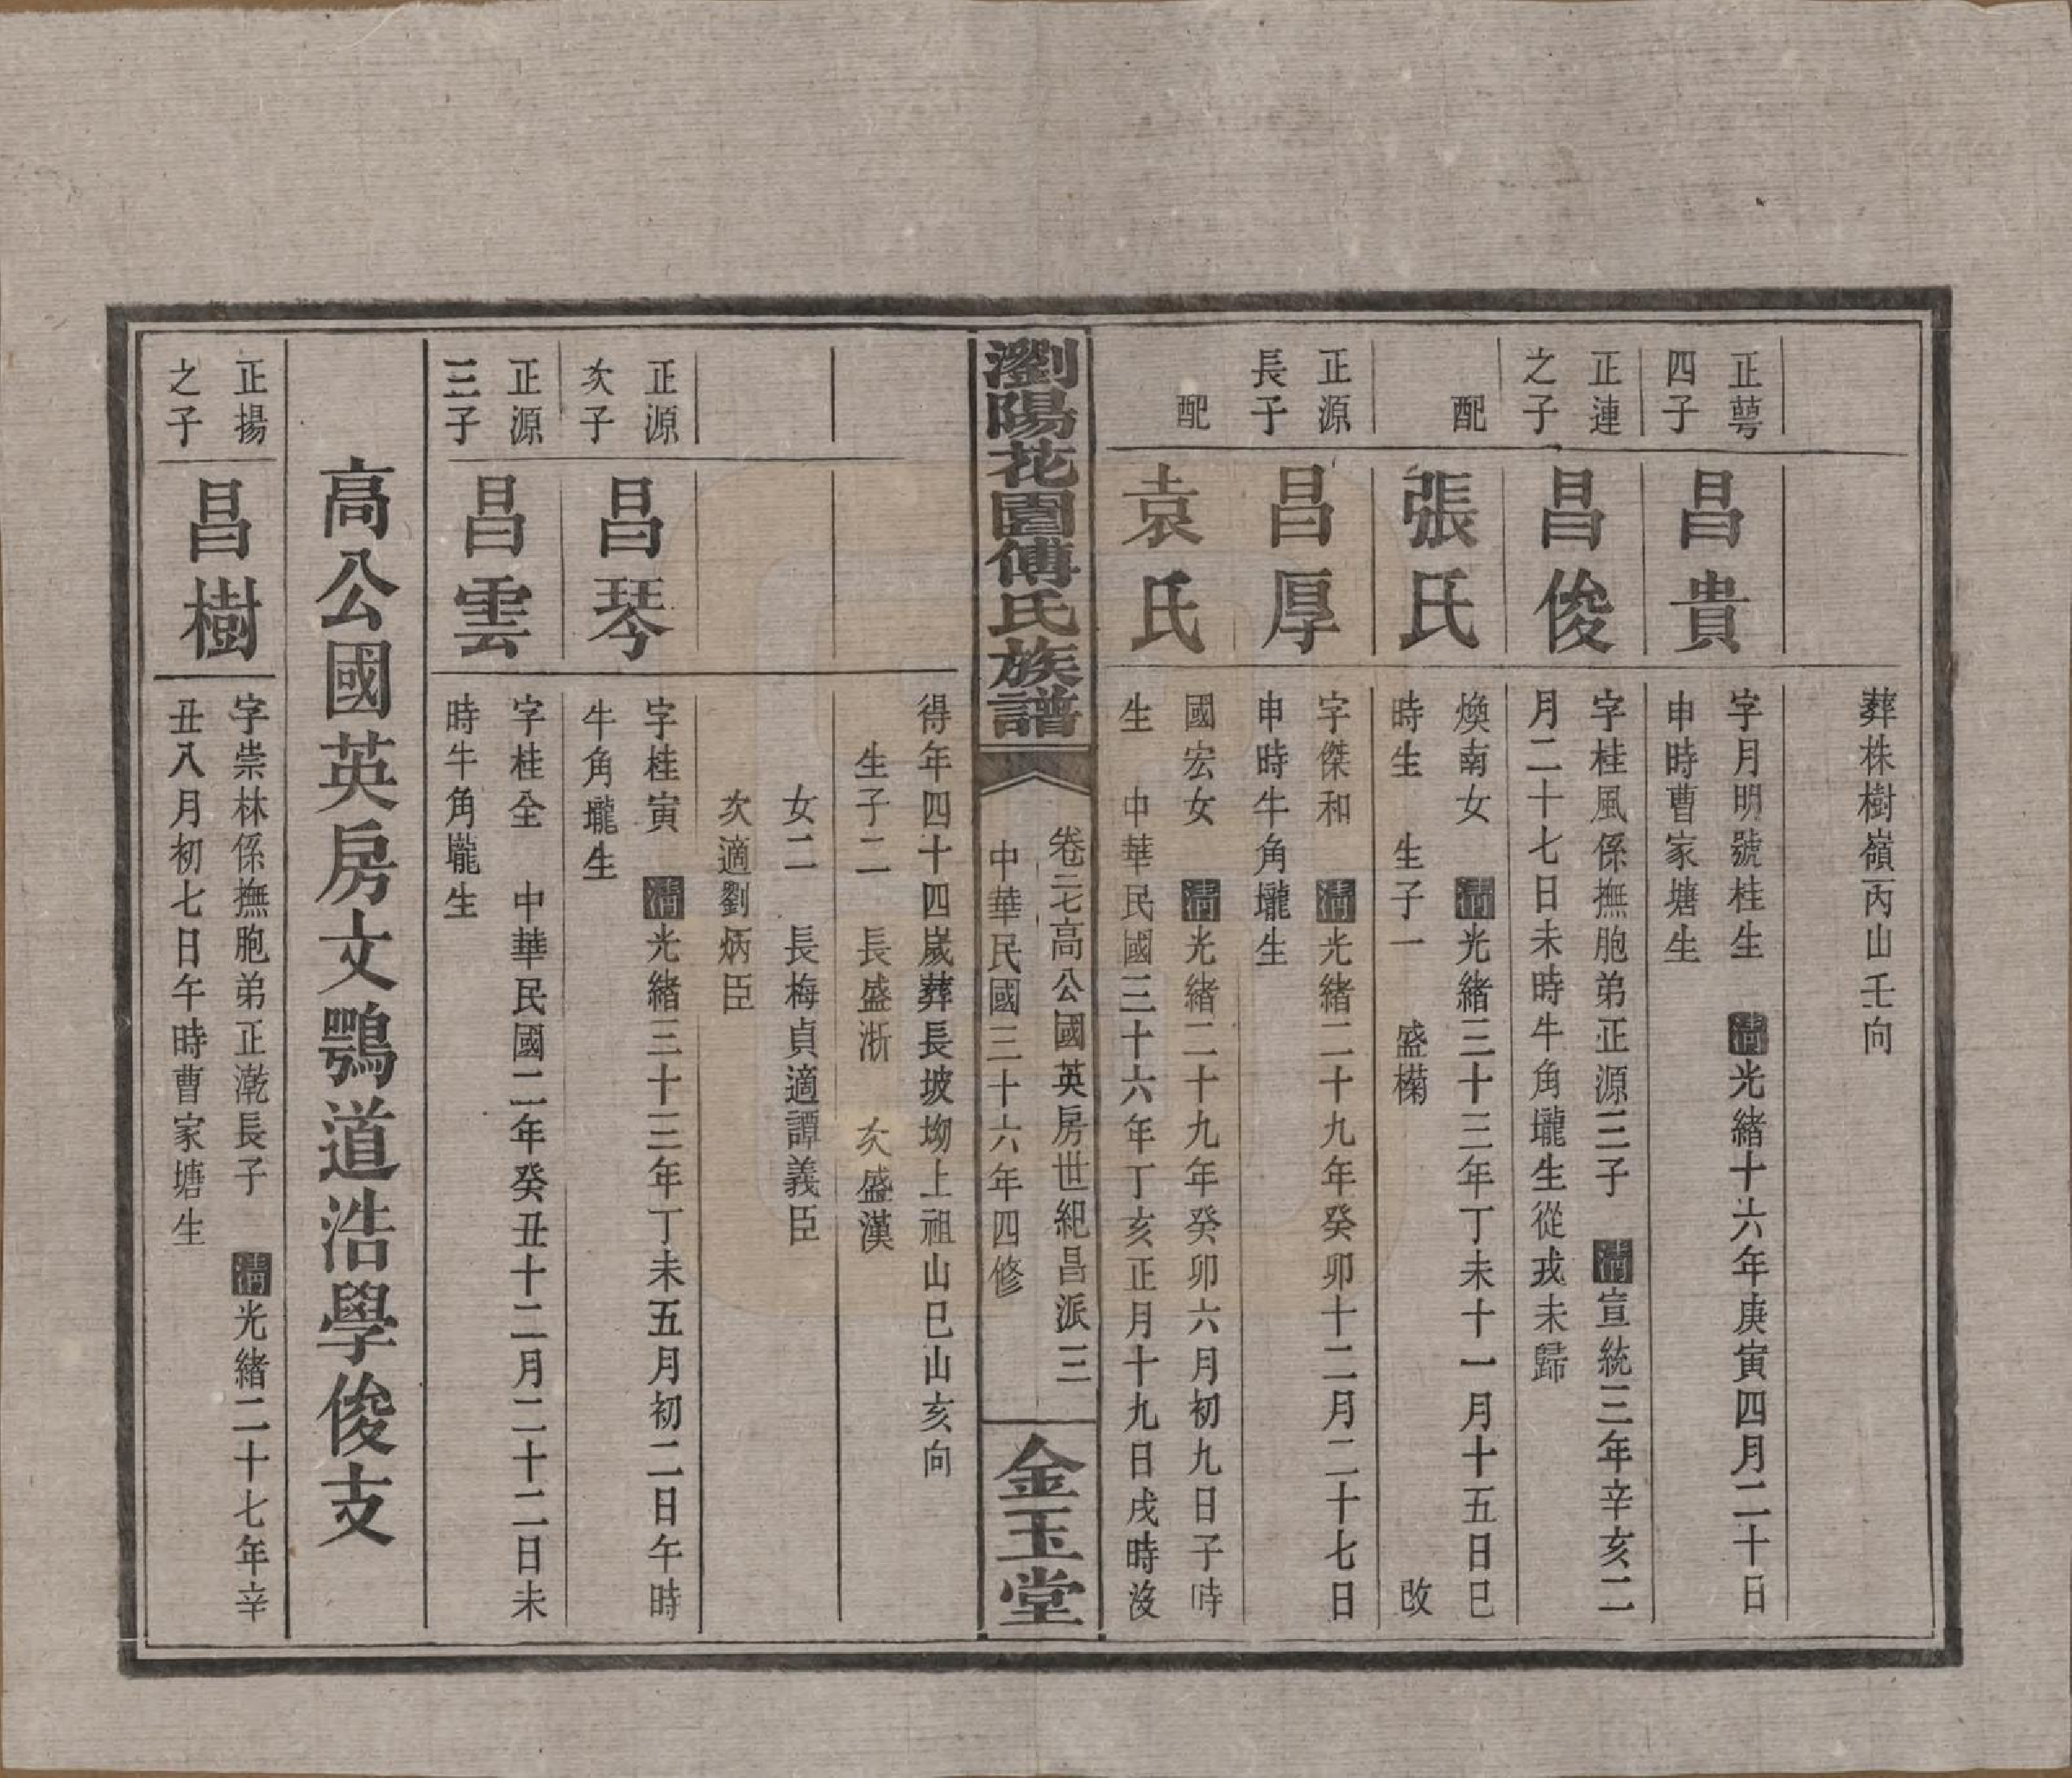 葬株樹嶺丙山壬向
正萼
四子
昌貴
字月明號桂生 清光緒十六年庚寅四月二十日
申時曹家塘生
正連
之子
昌俊
字桂風係撫胞弟正源三子 清宣統三年辛亥二
月二十七日未時牛角壠生從戎未歸
配
張氏
煥南女 清光緒三十三年丁未十一月十五日巳
時生 生子一 盛橗 改
正源
長子
昌厚
字傑和 清光緒二十九年癸卯十二月二十七日
申時牛角壠生
配
袁氏
國宏女 清光緒二十九年癸卯六月初九日子時
生 中華民國三十六年丁亥正月十九日戌時沒
瀏陽花園傅氏族譜
卷二七高公國英房世紀昌派 三
中華民國三十六年四修
金玉堂
得年四十四嵗葬長坡坳上祖山巳山亥向
生子二 長盛浙 次盛漢
女二 長梅貞適譚義臣
次適劉炳臣
正源
次子
昌琴
字桂寅 清光緒三十三年丁未五月初二日午時
牛角壠生
正源
三子
昌雲
字桂全 中華民國二年癸丑十二月二十二日未
時牛角壠生
高公國英房文鶚道浩學俊支
正揚
之子
昌樹
字崇林係撫胞弟正漧長子 清光緒二十七年辛
丑八月初七日午時曹家塘生